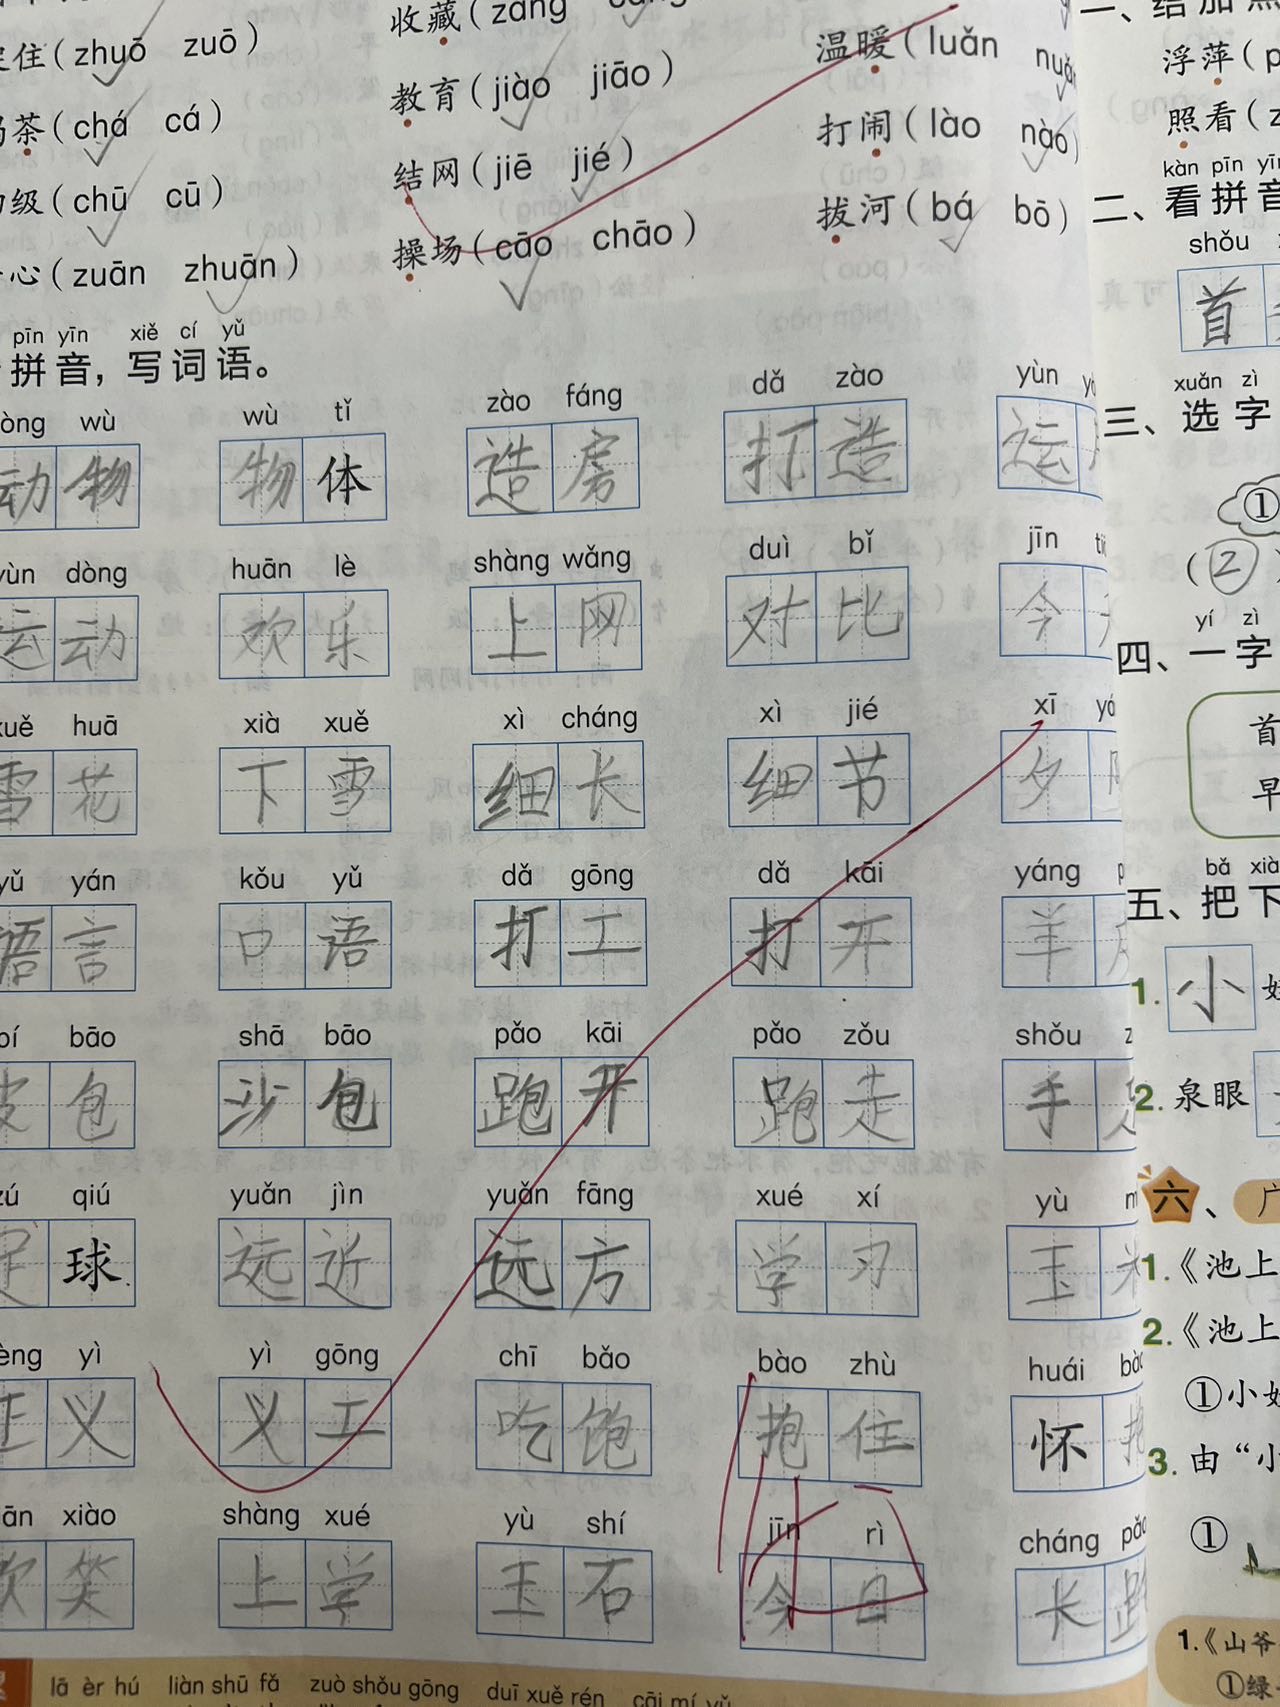 收藏(zāng cáng)
住(zhuō zuō)
教育(jiào jiāo)
温暖(luǎn nuǎn
茶(chá cá)
结网(jiē jié)
打闹(lào nào)
级(chū cū)
操场(cāo chāo)
拔河(bá bō)
心(zuān zhuān)
pīn yīn xiě cí yǔ
拼音，写词语。
wù wù tǐ zào fáng dǎ zào yùn
动物 物体 造房 打造 运
yùn dòng huān lè shàng wǎng duì bǐ jīn
运动 欢乐 上网 对比 今
huā xià xuě xì cháng xì jié xī
雪花 下雪 细长 细节 夕
yǔ yán kǒu yǔ dǎ gōng dǎ kāi yáng
语言 口语 打工 打开 羊
bāo shā bāo pǎo kāi pǎo zǒu shǒu
皮包 沙包 跑开 跑走 手
zú qiú yuǎn jìn yuǎn fāng xué xí yù
足球 远近 远方 学习 玉
yì yì gōng chī bǎo bào zhù huái bào
正义 义工 吃饱 抱住 怀抱
xiào shàng xué yù shí jīn rì cháng pǎo
欢笑 上学 玉石 今日 长跑
lā èr hú liàn shū fǎ zuò shǒu gōng duī xuě rén
一、给加
浮萍(p
照看(z
kàn pīn yīn
二、看拼音
shǒu
首
xuǎn zì
三、选字
①
(②)
yí zì
四、一字
首
早
bǎ xià
五、把下
1. 小
2. 泉眼
六、
1.《池上
2.《池上
①小
3. 由“小
①
1.《山爷
①绿